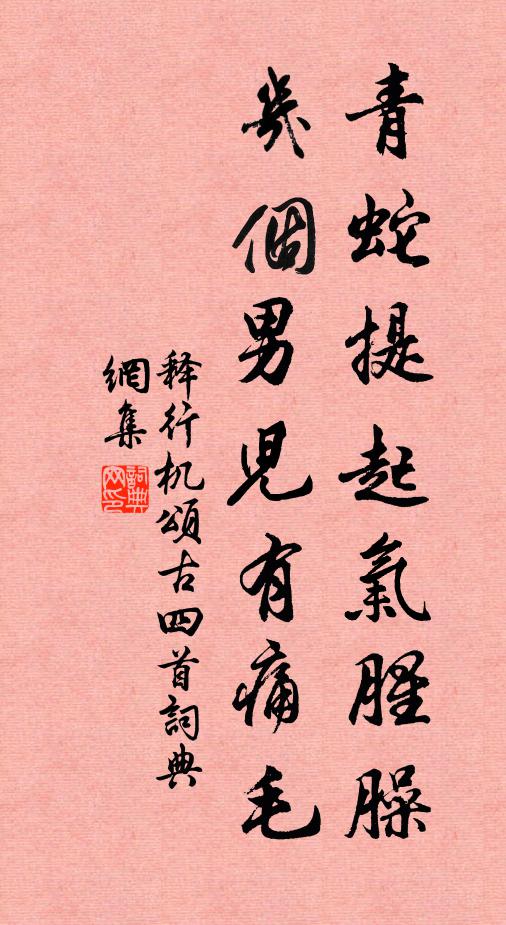 青蛇提起氣腥臊
幾個男児有痛毛
释行机頌古四首詞典
網集
詞典網印